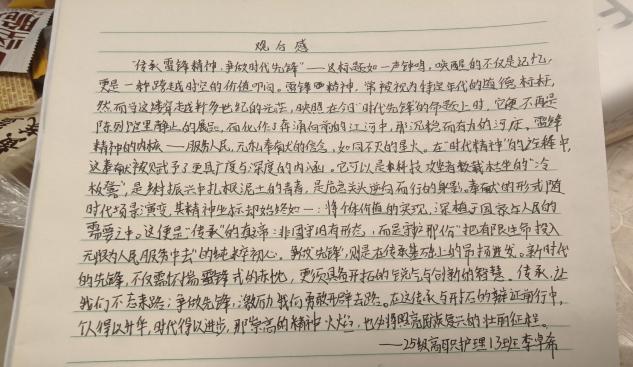 观后感
"传承雷锋精神，争做时代先锋"——这标题如一声钟鸣，唤醒的不仅是记忆，
更是一种跨越时空的价值叩问。雷锋精神，常被视为特定年代的道德标杆，
然而当这缕穿越半个多世纪的光芒，映照在今日"时代先锋"的命题上时，它便不再是
陈列馆里静止的展品，而化作了奔涌向前的江河中，那沉稳而有力的河床。雷锋
精神的内核——服务人民、无私奉献的信念，如同不灭的星火。在"时代精神"的诠释中，
这奉献被赋予了更具广度与深度的内涵。它可以是科技攻坚者数载坐的"冷
板凳"，是乡村振兴中扎根泥土的青春，是危急关头逆向而行的身影。奉献的形式随
时代场景演变，其精神坐标却始终如一：将个体价值的实现，深植于国家与人民的
需要之中。这便是"传承"的真谛：非固守旧有形态，而是守护那份"把有限生命投入
无限为人民服务中去"的纯粹初心。争做先锋，则是在传承基础上的昂扬进发。新时代
的先锋，不仅需怀揣雷锋式的赤忱，更须具备开拓的勇气与创新的智慧。传承，让
我们不忘来路；争做先锋，激励我们勇敢开辟去路。在这传承与开拓的辩证前行中，
个人得以升华，时代得以进步，那崇高的精神火焰，也必将照亮民族复兴的壮丽征程。
——25级高职护理13班 李卓